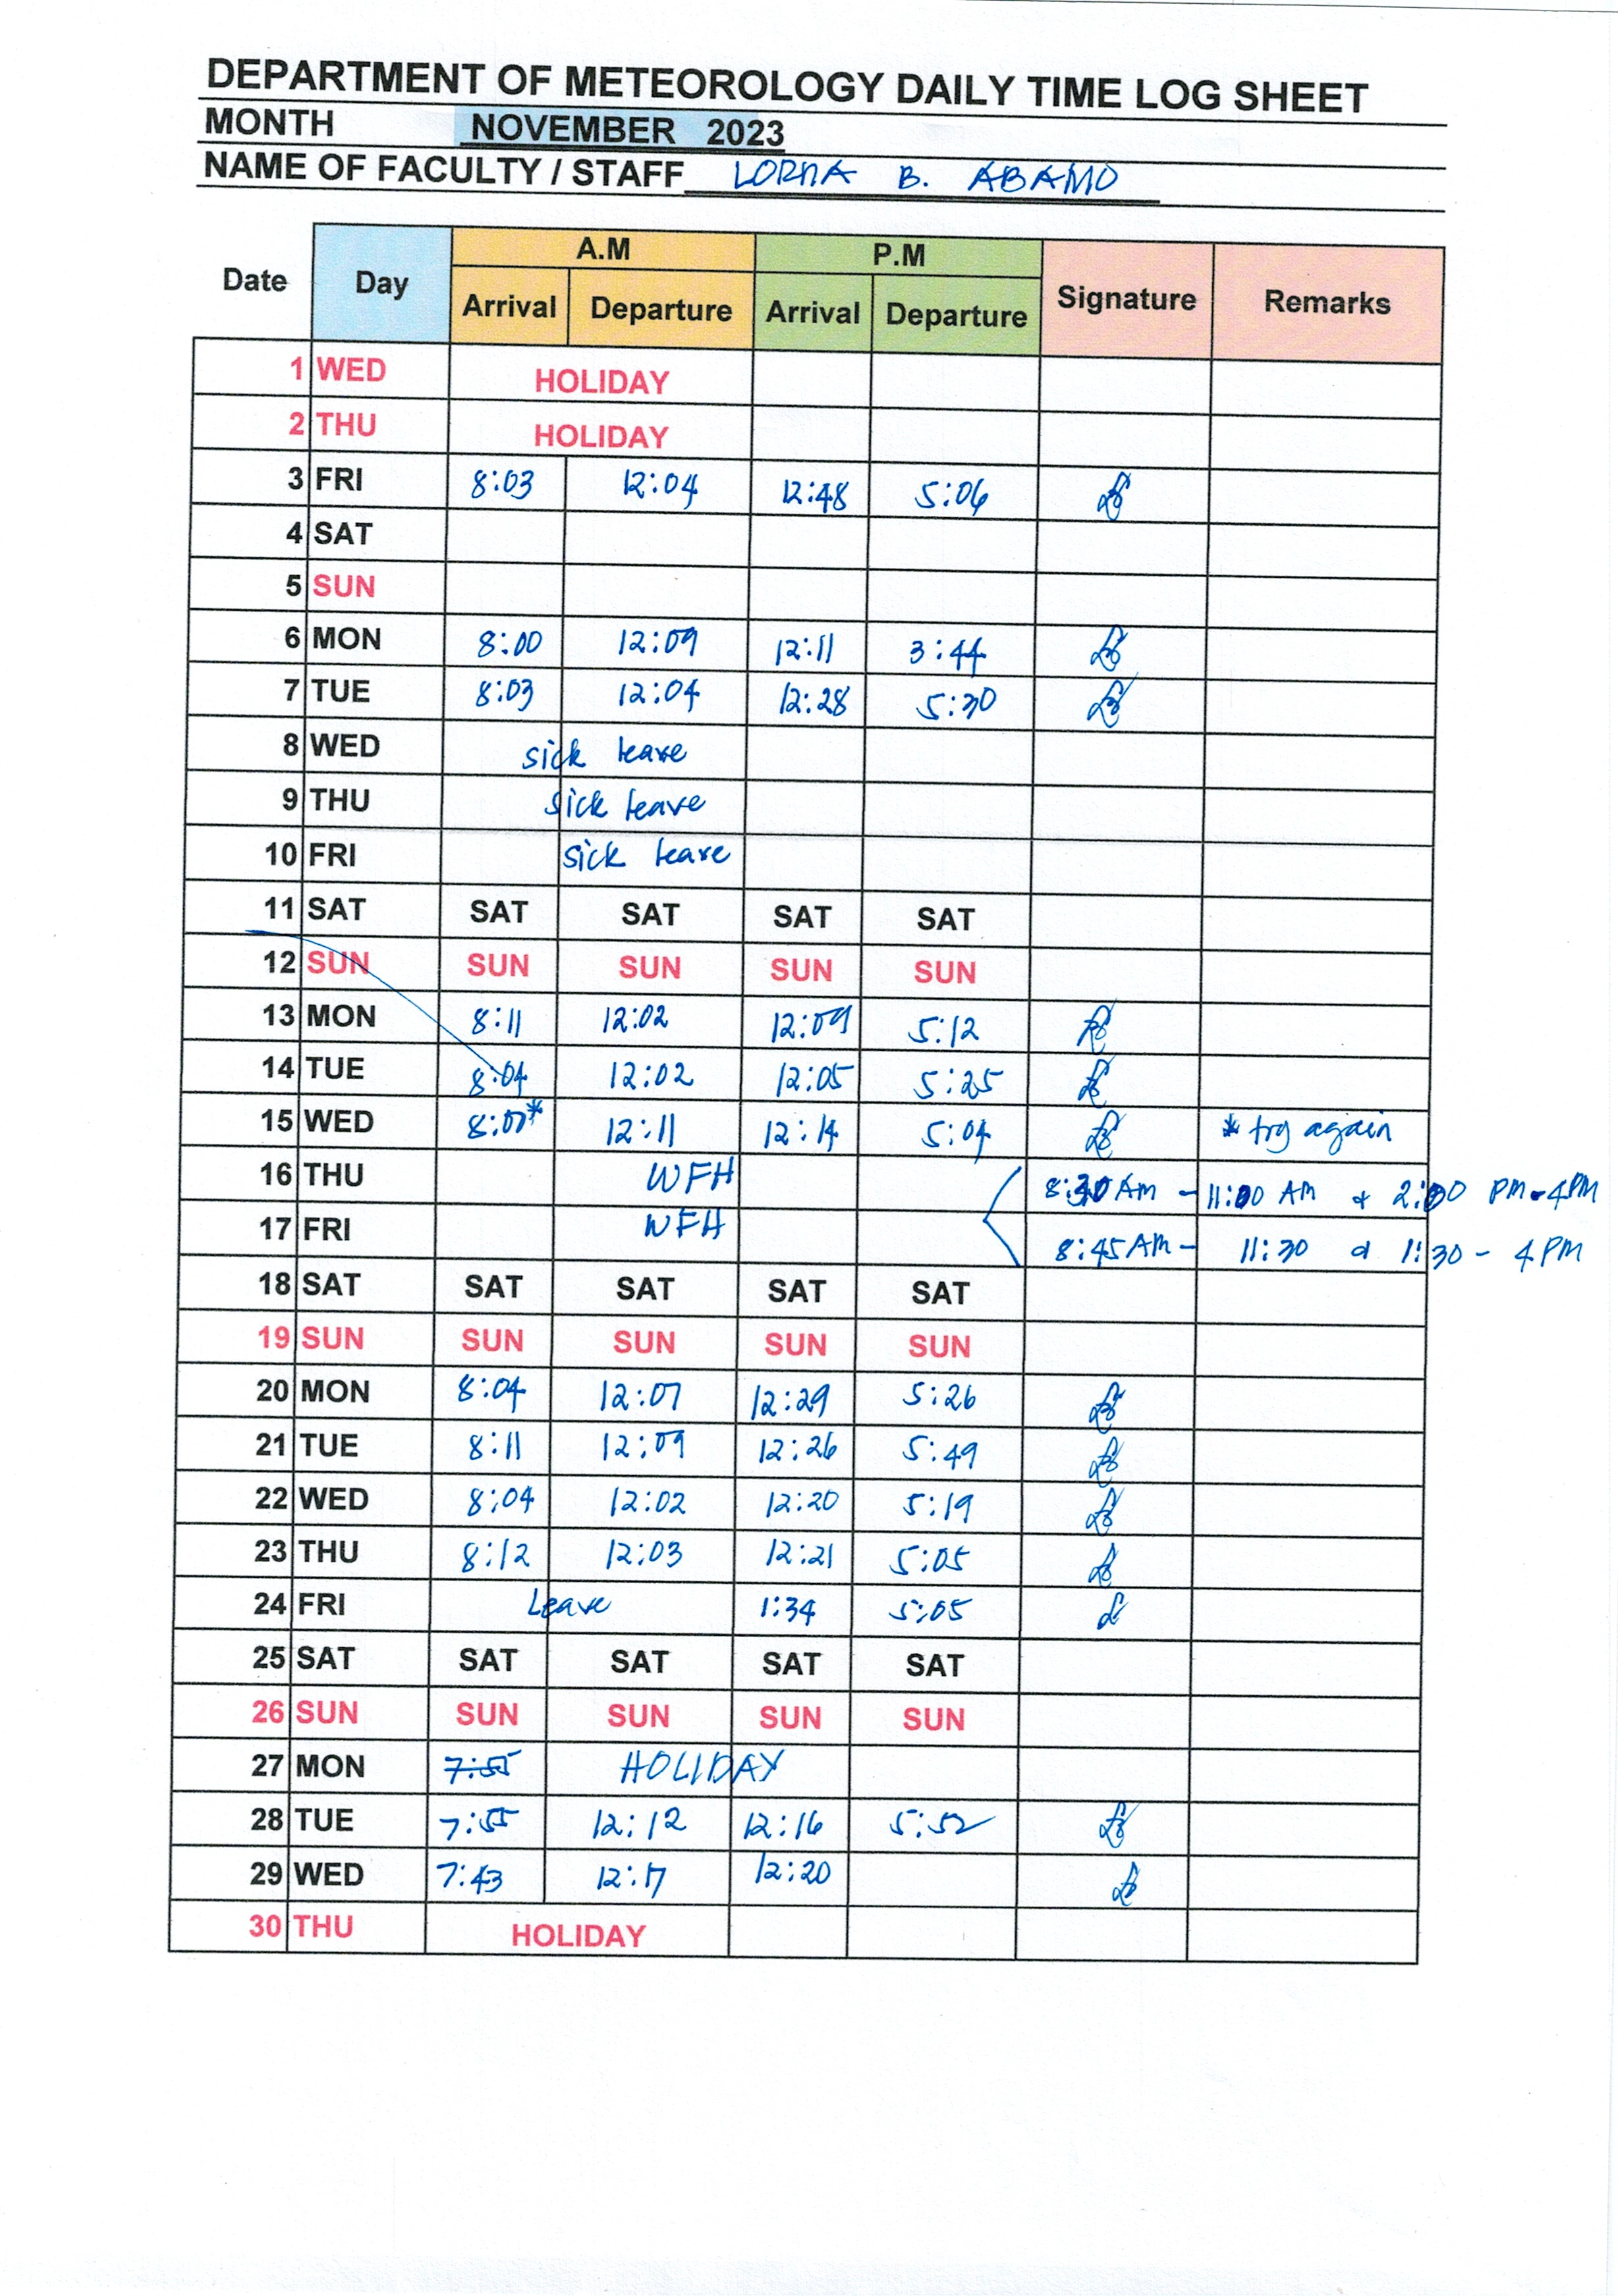 DEPARTMENT OF METEOROLOGY DAILY TIME LOG SHEET
MONTH NOVEMBER 2023
NAME OF FACULTY / STAFF LORNA B. ABAMO
A.M P.M
Date Day Signature Remarks
Arrival Departure Arrival Departure
1 WED HOLIDAY
2 THU HOLIDAY
3 FRI 8:03 12:04 12:48 5:06
4 SAT
5 SUN
6 MON 8:00 12:09 12:11 3:44
7 TUE 8:03 12:04 12:28 5:30
8 WED sick leave
9 THU sick leave
10 FRI sick leave
11 SAT SAT SAT SAT SAT
12 SUN SUN SUN SUN SUN
13 MON 8:11 12:02 12:09 5:12
14 TUE 8:04 12:02 12:05 5:25
15 WED 8:07* 12:11 12:14 5:04 * try again
16 THU WFH 8:30 AM - 11:00 AM & 2:00 PM - 4 PM
17 FRI WFH 8:45 AM - 11:30 & 1:30 - 4 PM
18 SAT SAT SAT SAT SAT
19 SUN SUN SUN SUN SUN
20 MON 8:04 12:07 12:29 5:26
21 TUE 8:11 12:09 12:26 5:49
22 WED 8:04 12:02 12:20 5:19
23 THU 8:12 12:03 12:21 5:05
24 FRI Leave 1:34 5:05
25 SAT SAT SAT SAT SAT
26 SUN SUN SUN SUN SUN
27 MON 7:55 HOLIDAY
28 TUE 7:55 12:12 12:16 5:52
29 WED 7:43 12:17 12:20
30 THU HOLIDAY